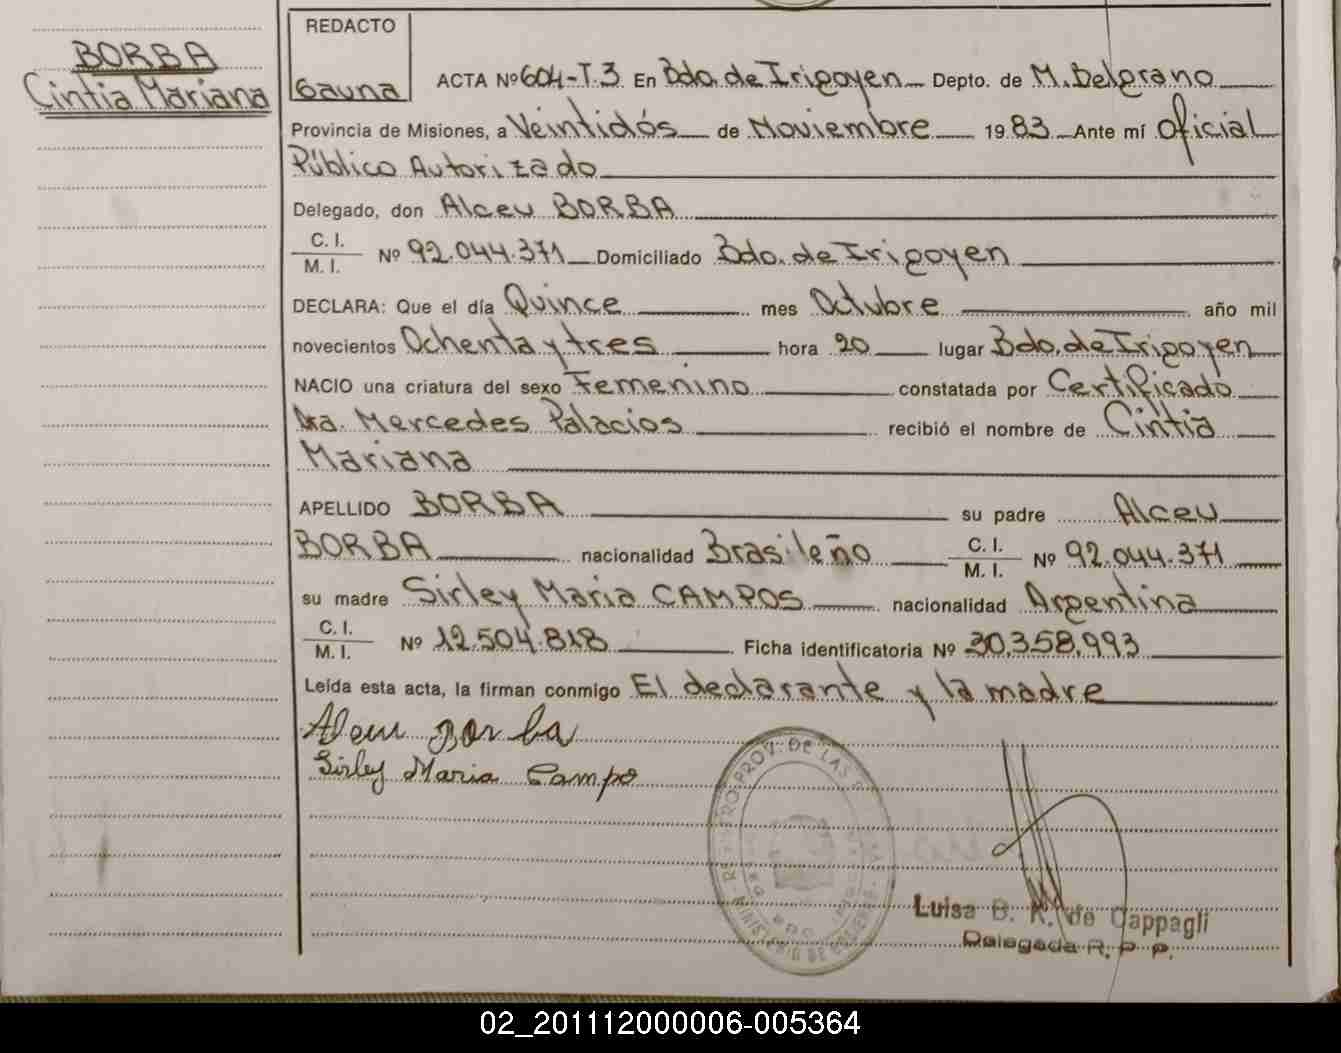 BORBA
Cintia Mariana
REDACTO
Gauna
ACTA Nº 604-T.3 En Bdo. de Irigoyen Depto. de M. Belgrano
Provincia de Misiones, a Veintidós de Noviembre 19 83 Ante mí Oficial
Público Autorizado
Delegado, don Alceu BORBA
C. I.
M. I. Nº 92.044.371 Domiciliado Bdo. de Irigoyen
DECLARA: Que el día Quince mes Octubre año mil
novecientos Ochenta y tres hora 20 lugar Bdo. de Irigoyen
NACIO una criatura del sexo Femenino constatada por Certificado
Dra. Mercedes Palacios recibió el nombre de Cintia
Mariana
APELLIDO BORBA su padre Alceu
BORBA nacionalidad Brasileño C. I. M. I. Nº 92.044.371
su madre Sirley Maria CAMPOS nacionalidad Argentina
C. I.
M. I. Nº 12.504.818 Ficha identificatoria Nº 30.358.993
Leída esta acta, la firman conmigo El declarante y la madre
Alceu Borba
Sirley Maria Campo
PROV. DE LAS
MINISTERIO DE GOBIERNO
Luisa B. K. de Cappagli
Delegada R. P. P.
02_201112000006-005364